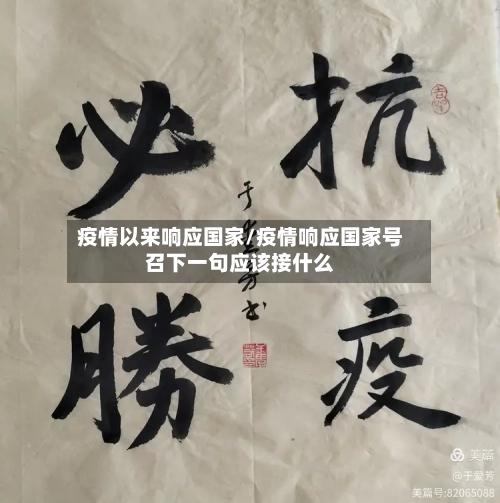 抗疫
必勝
疫情以来响应国家/疫情响应国家号
召下一句应该接什么
美篇
@于爱芳
美篇号:82065088